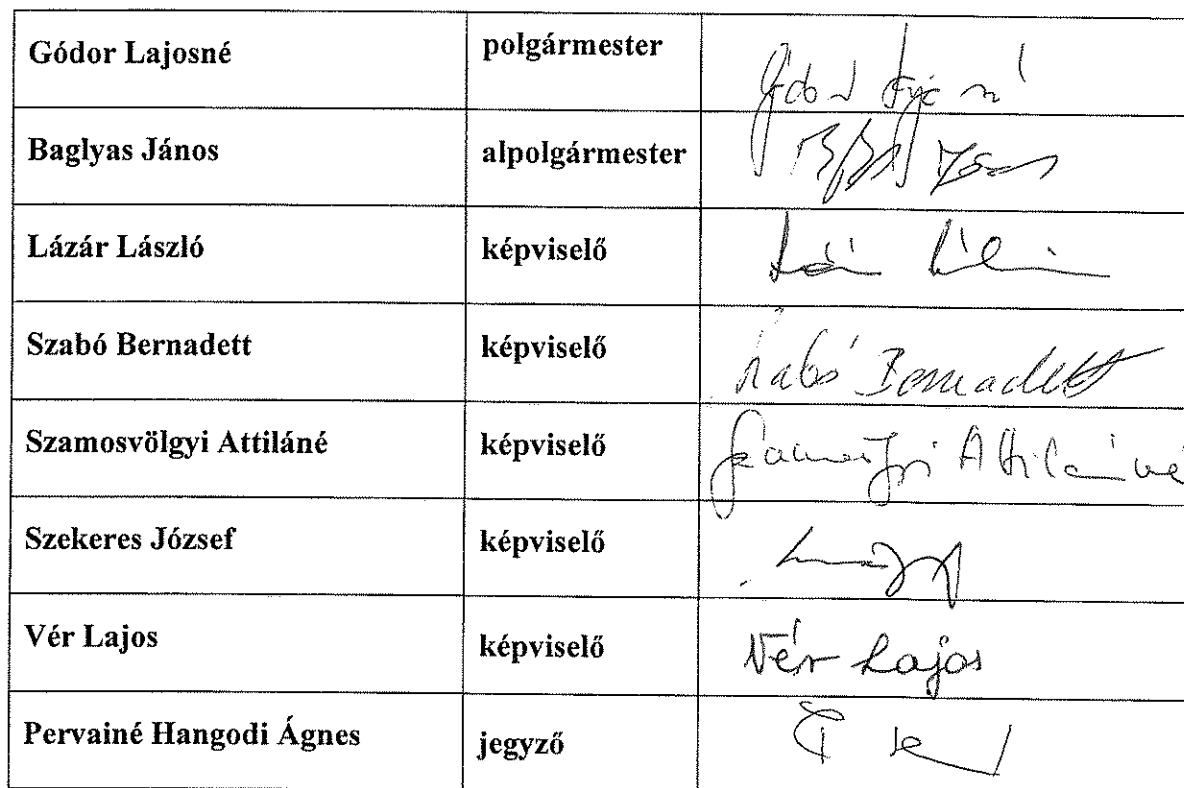 Gódor Lajosné polgármester
Baglyas János alpolgármester
Lázár László képviselő
Szabó Bernadett képviselő Szabó Bernadett
Szamosvölgyi Attiláné képviselő Attiláné
Szekeres József képviselő
Vér Lajos képviselő Vér Lajos
Pervainé Hangodi Ágnes jegyző